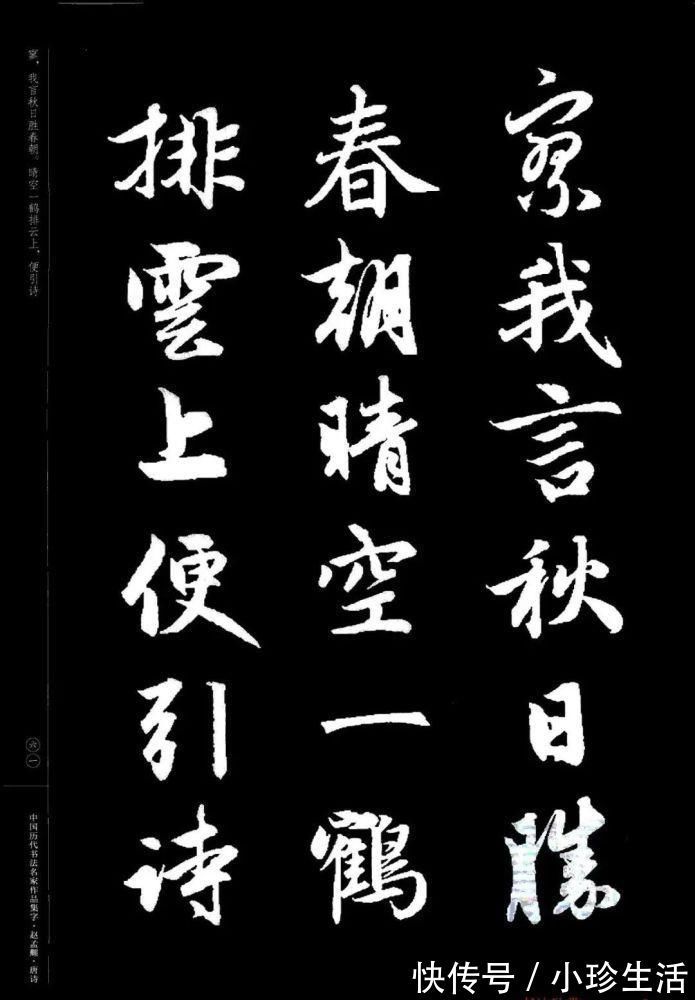 寥我言秋日勝
春朝晴空一鶴
排雲上便引诗
寥，我言秋日胜春朝。晴空一鹤排云上，便引诗
六一
中国历代书法名家作品集字·赵孟頫·唐诗
快传号／小珍生活